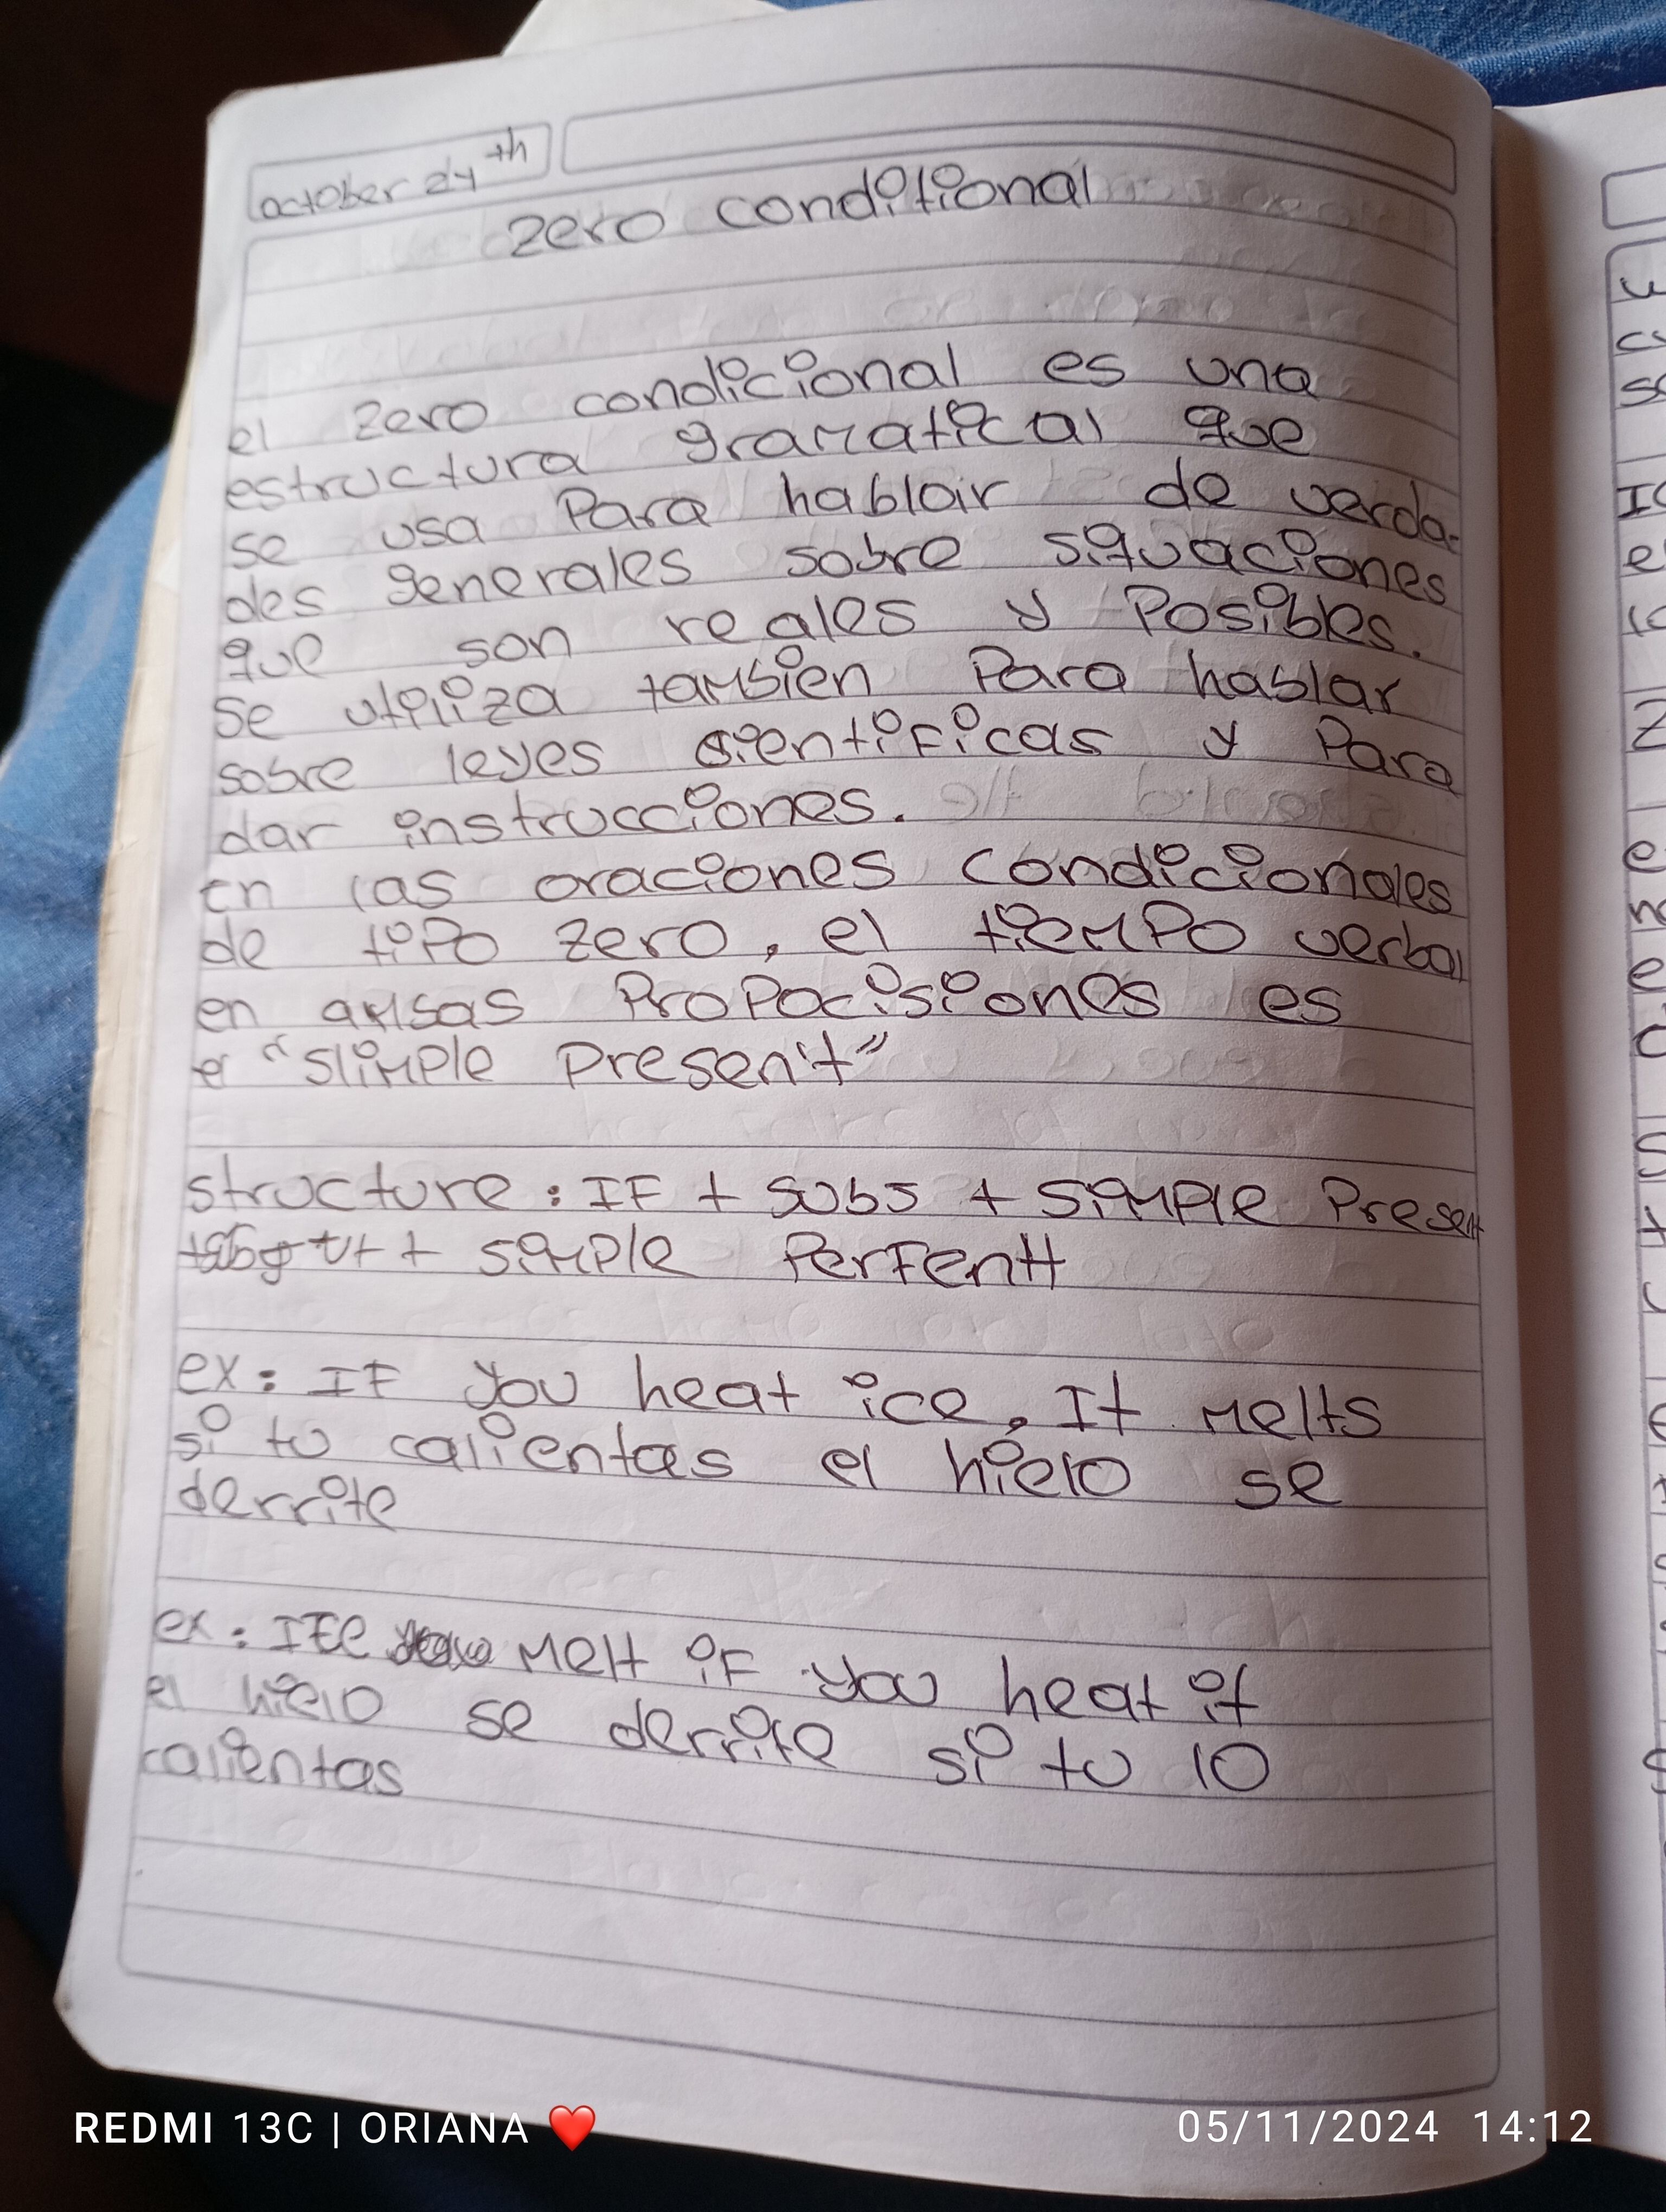 october 24th
zero conditional
el zero condicional es una
estructura gramatical que
se usa para hablair de verda-
des generales sobre siquaciones
que son reales y posibles.
se utiliza tambien para hablar
sobre leyes sientificas y para
dar instrucciones.
en las oraciones condicionales
de tipo zero, el tiempo verbal
en ambas propocisiones es
el "slimple present"
structure: IF + subs + simple present
+ simple
ex: IF you heat ice, It melts
si tu calientas el hielo se
derrite
ex: melt if you heat it
el hielo se derrite si tu lo
calientas
REDMI 13C | ORIANA ❤️
05/11/2024 14:12